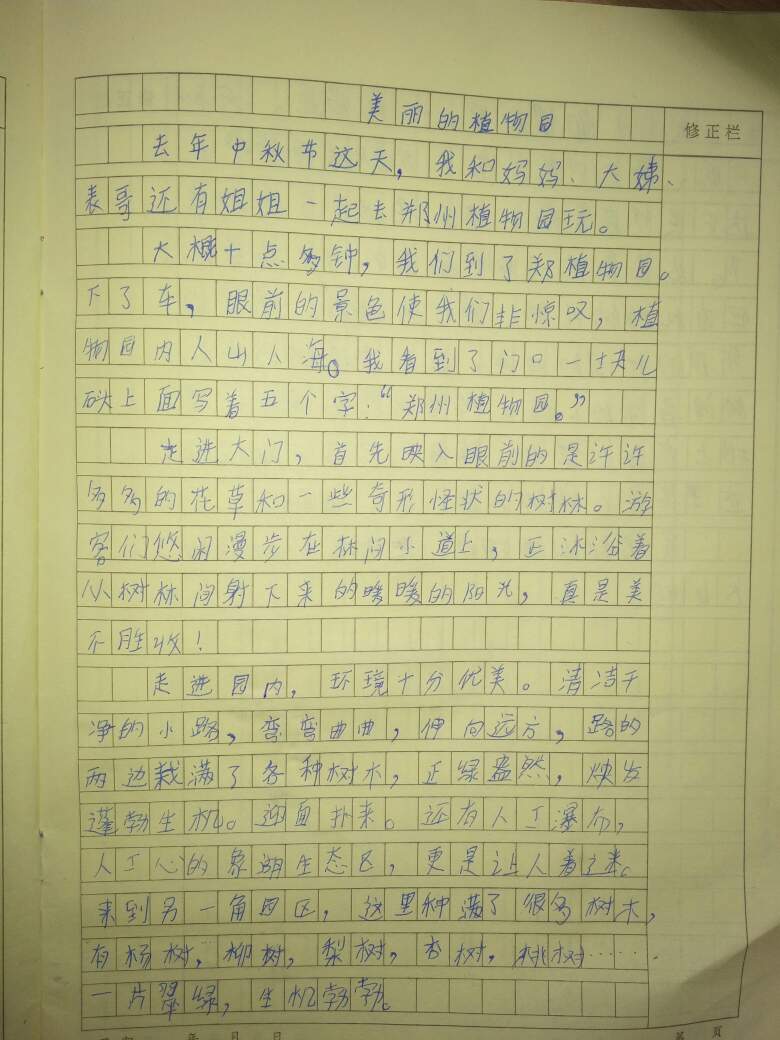 美丽的植物园
修正栏
去年中秋节这天，我和妈妈、大姨、
表哥还有姐姐一起去郑州植物园玩。
大概十点多钟，我们到了郑植物园。
下了车，眼前的景色使我们非惊叹，植
物园内人山人海。我看到了门口一块儿
上面写着五个字：“郑州植物园。”
走进大门，首先映入眼前的是许许
多多的花草和一些奇形怪状的树林。游
客们悠闲漫步在林间小道上，正沐浴着
从树林间射下来的暖暖的阳光，真是美
不胜收！
走进园内，环境十分优美。清洁干
净的小路，弯弯曲曲，伸向远方，路的
两边栽满了各种树木，正绿盎然，焕发
蓬勃生机。迎面扑来。还有人工瀑布，
人工心的象湖生态区，更是让人着了迷。
来到另一角园区，这里种满了很多树木，
有杨树，柳树，梨树，杏树，桃树……
一片翠绿，生机勃勃。
年 月 日
页